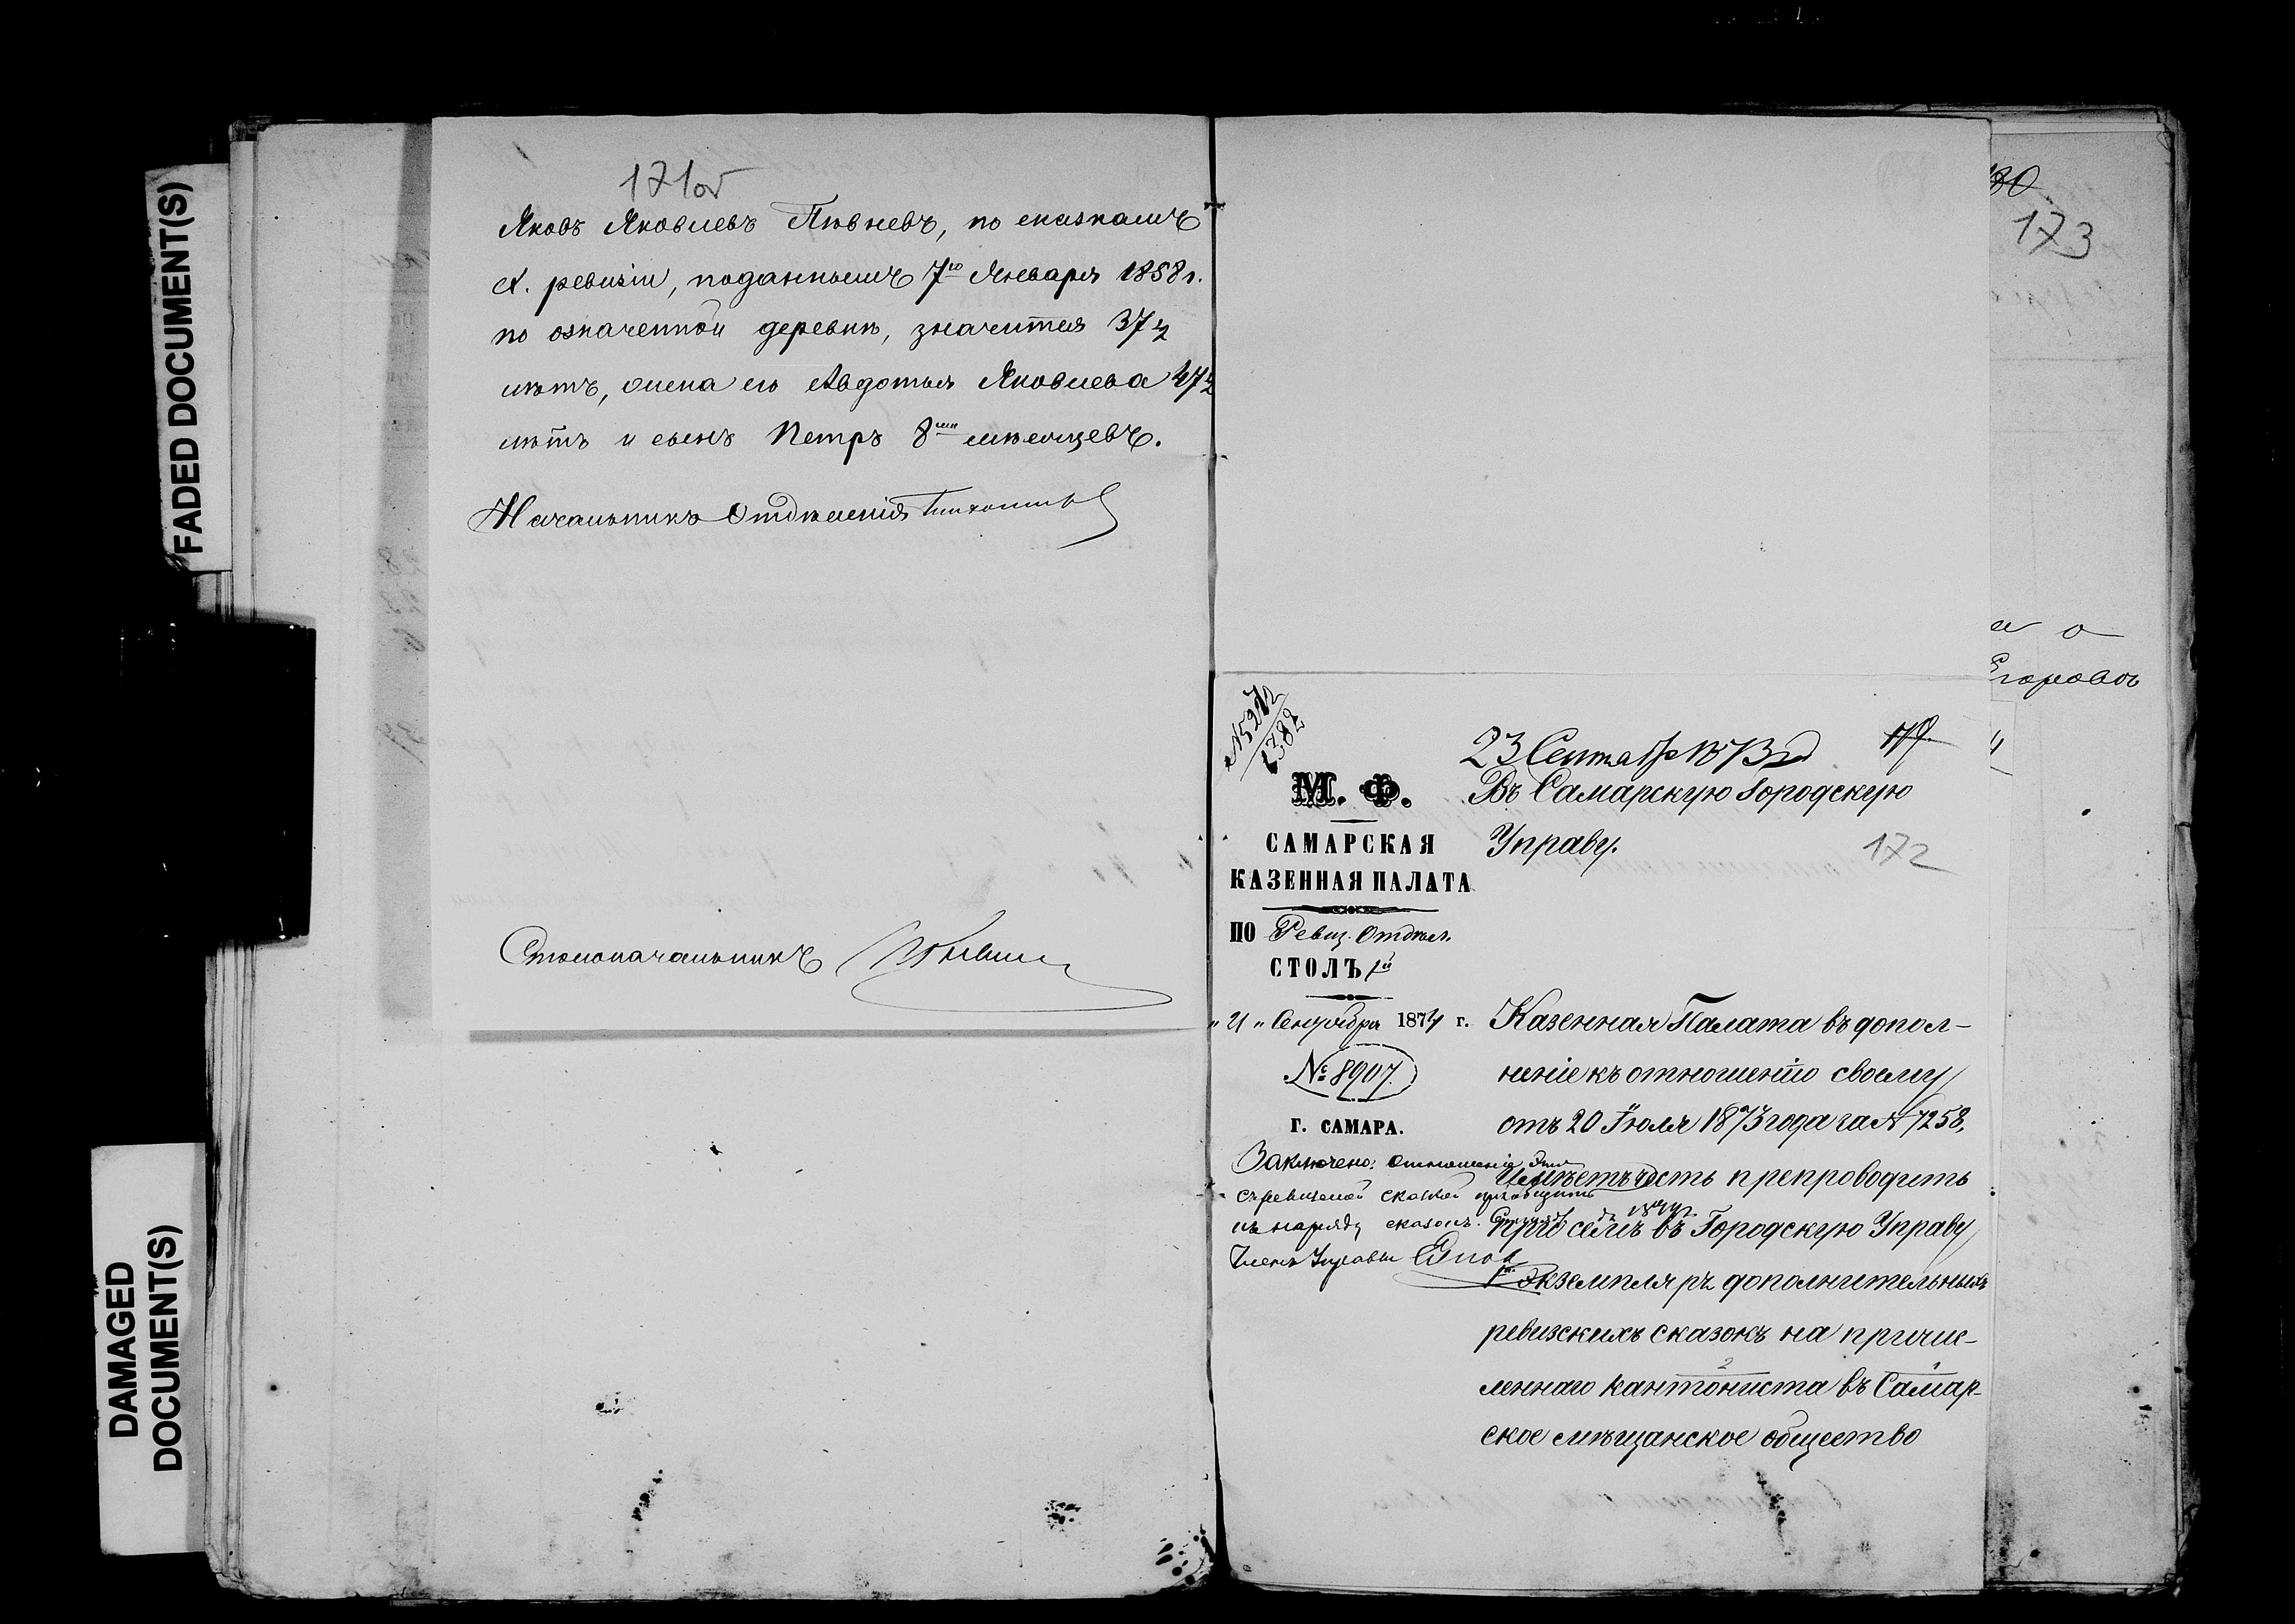 FADED DOCUMENT(S)
DAMAGED
DOCUMENT(S)
171об
Яковъ Яковлевъ Пѣвневъ, по сказкамъ
X. ревизіи, поданнымъ 7го Января 1858 г.
по означенной деревнѣ, значится 37 ½
лѣтъ, жена его Авдотья Яковлева 47 ½
лѣтъ и сынъ Петръ 8ми мѣсяцевъ.
Начальникъ Отдѣленія
Столоначальникъ
130
173
а о
Егоровъ
23 Сентабр 1873 г
Въ Самарскую Городскую
Управу.
172
М. Ф.
САМАРСКАЯ
КАЗЕННАЯ ПАЛАТА
ПО Ревиз. Отдѣл.
СТОЛЪ 1й
"21" Сентября 187 г.
№ 8907.
Г. САМАРА.
Казенная Палата въ допол-
неніе къ отношенію своему
отъ 20 Іюля 1873 года за № 7258,
имѣетъ честь препроводить
при семъ въ Городскую Управу
экземпляръ дополнительныхъ
ревизскихъ сказокъ на причис-
леннаго кантониста въ Самар-
ское мѣщанское общество
Заключено: отношеніе это
съ ревизской сказкой пріобщить
къ наряду сказокъ.
Членъ Управы